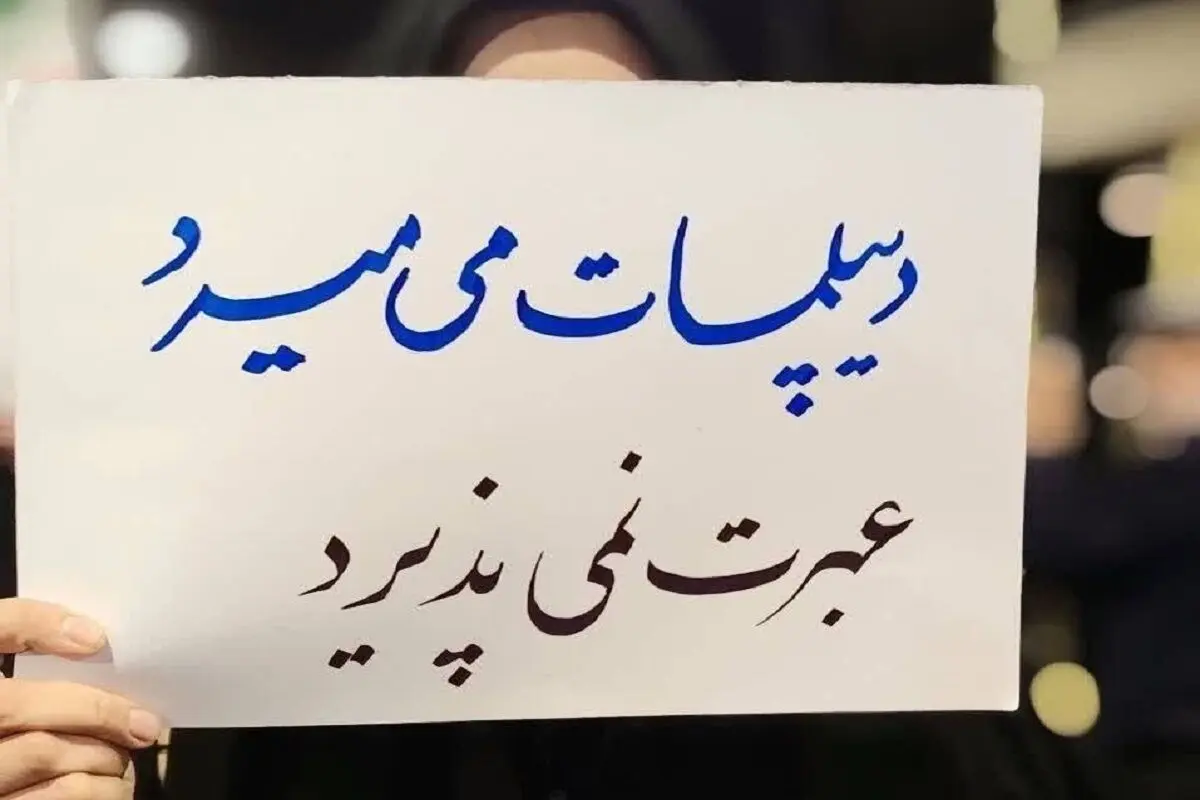 دیپلمات می میرد
عبرت نمی پذیرد